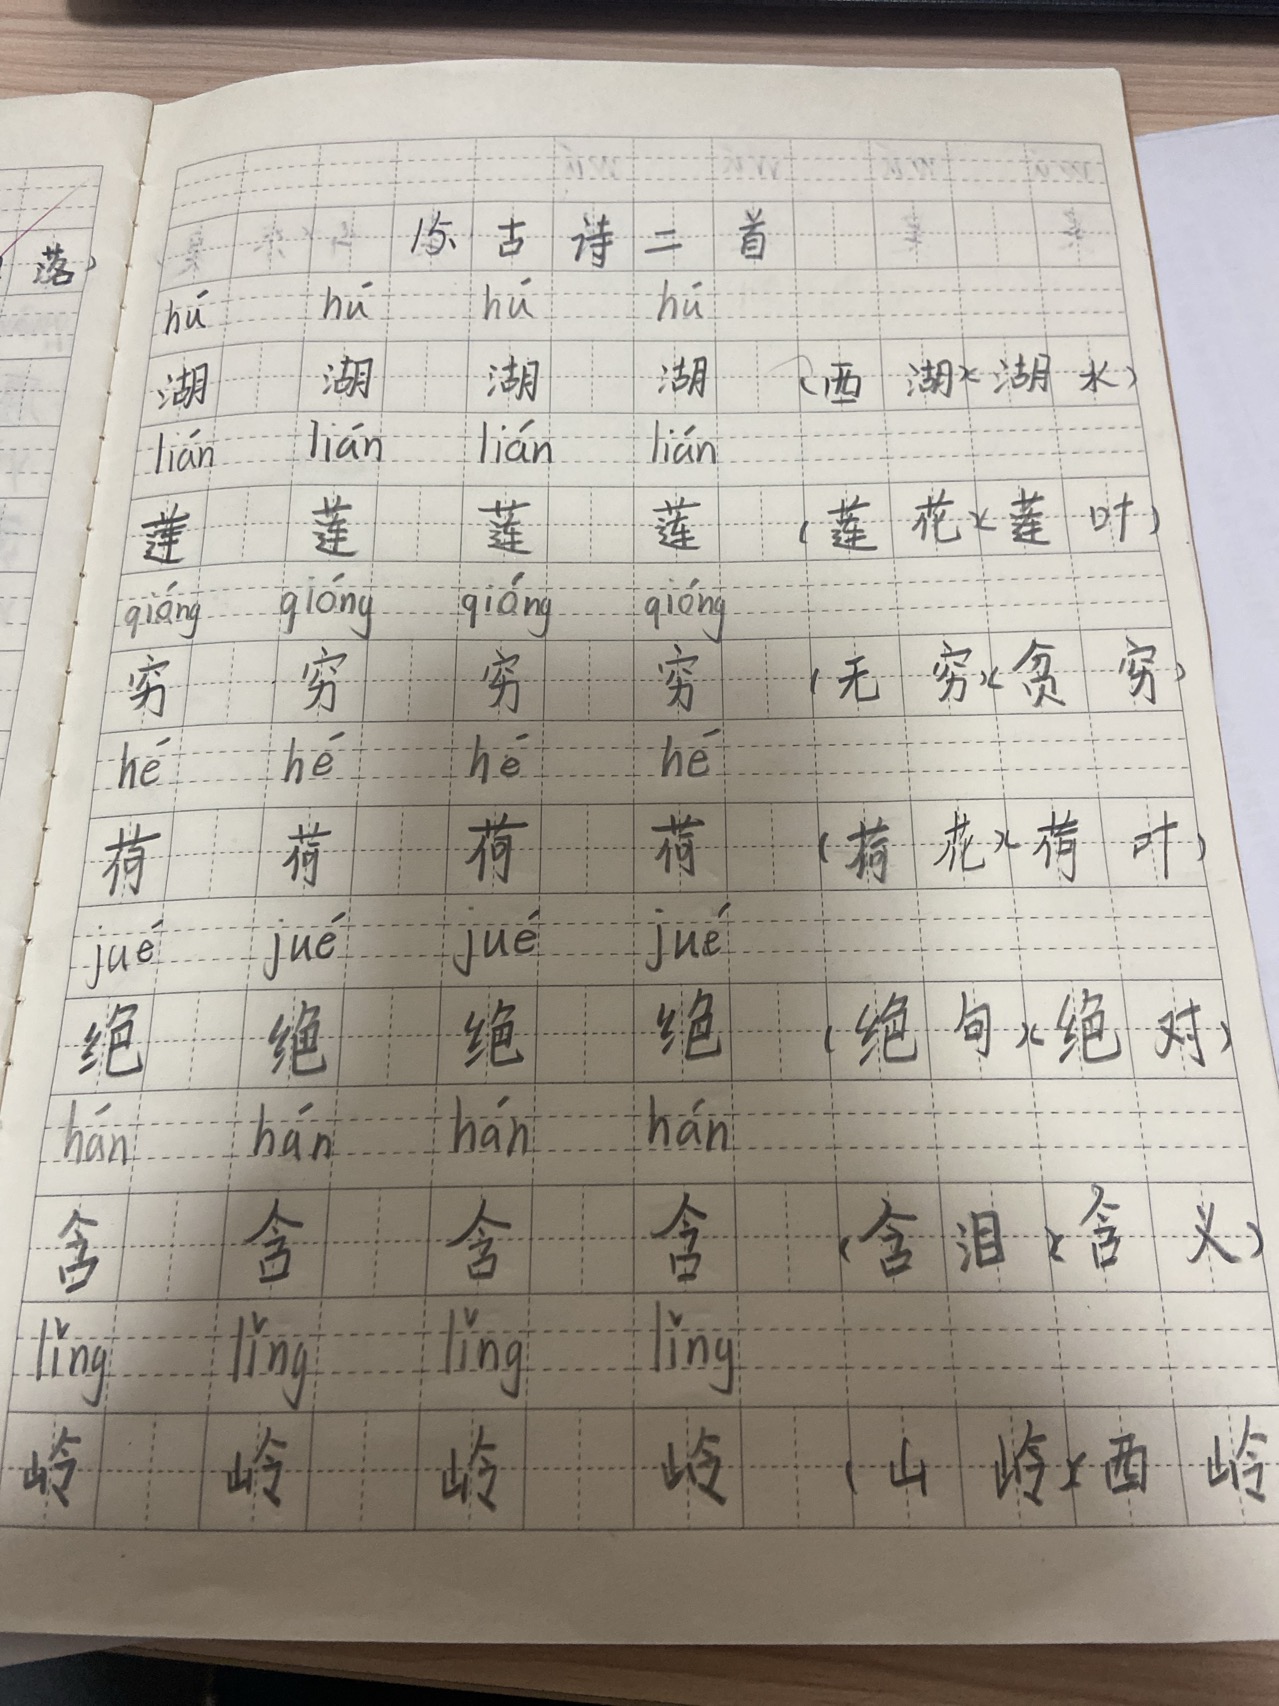 落）
15、古诗二首
hú hú hú hú
湖 湖 湖 湖 （西湖）（湖水）
lián lián lián lián
莲 莲 莲 莲 （莲花）（莲叶）
qióng qióng qióng qióng
穷 穷 穷 穷 （无穷）（贫穷）
hé hé hé hé
荷 荷 荷 荷 （荷花）（荷叶）
jué jué jué jué
绝 绝 绝 绝 （绝句）（绝对）
hán hán hán hán
含 含 含 含 （含泪）（含义）
lǐng lǐng lǐng lǐng
岭 岭 岭 岭 （山岭）（西岭